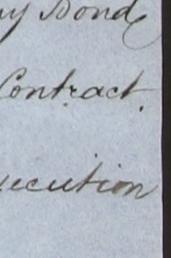 y Bond
Contract.
ecution